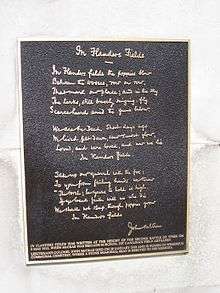 In Flanders Fields
In Flanders fields the poppies blow
Between the crosses, row on row,
That mark our place; and in the sky
The larks, still bravely singing, fly
Scarce heard amid the guns below.
We are the Dead. Short days ago
We lived, felt dawn, saw sunset glow,
Loved, and were loved, and now we lie
In Flanders fields
Take up our quarrel with the foe
To you from failing hands we throw
The torch; be yours to hold it high
If ye break faith with us who die
We shall not sleep, though poppies grow
In Flanders fields
John McCrae
IN FLANDERS FIELDS WAS WRITTEN AT THE HEIGHT OF THE SECOND BATTLE OF YPRES ON